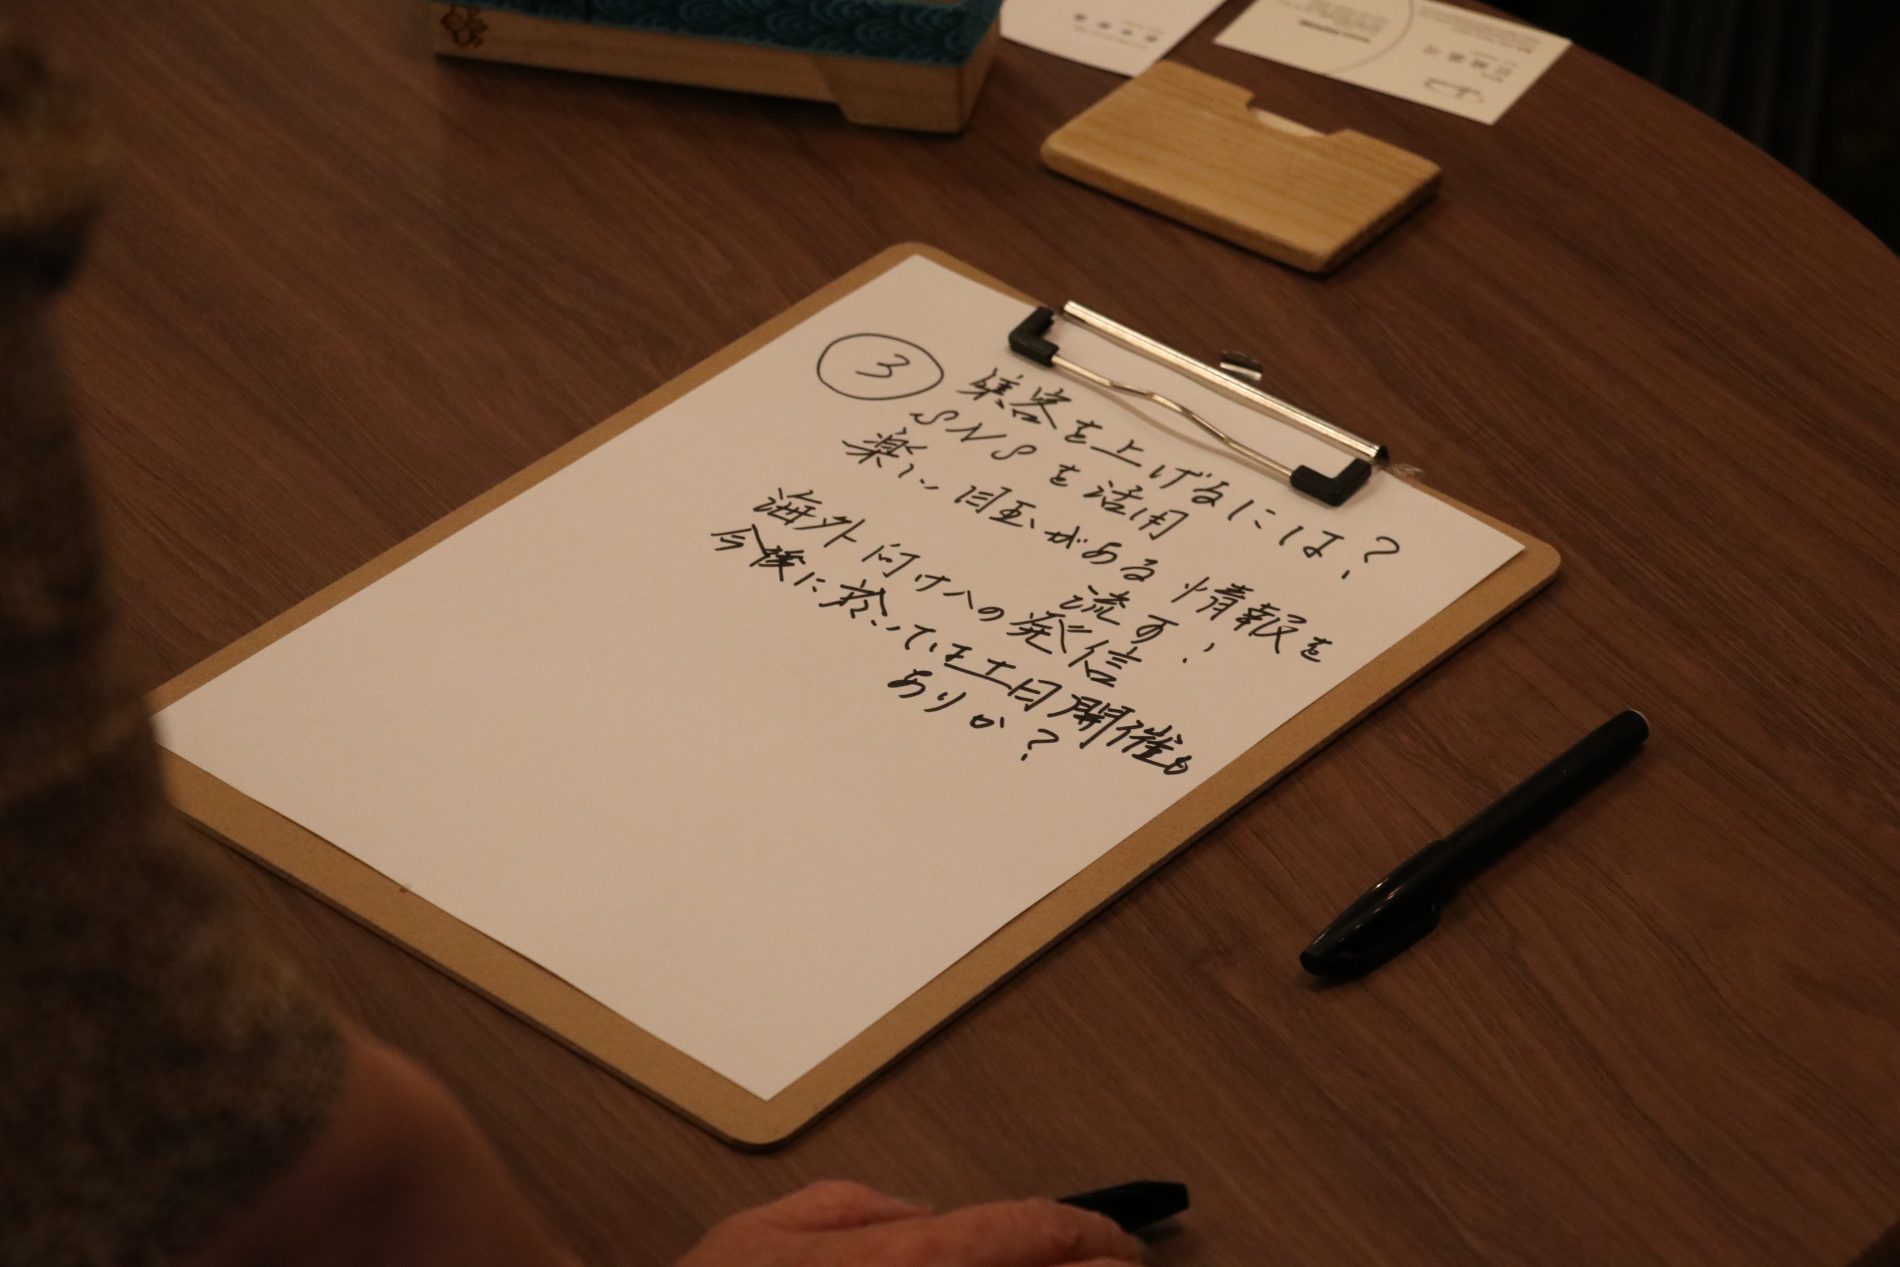 ③ 集客を上げるには?
SNSを活用
楽しい目玉がある情報を
流す!
海外向けへの発信
今後に於いては土日開催も
ありか?